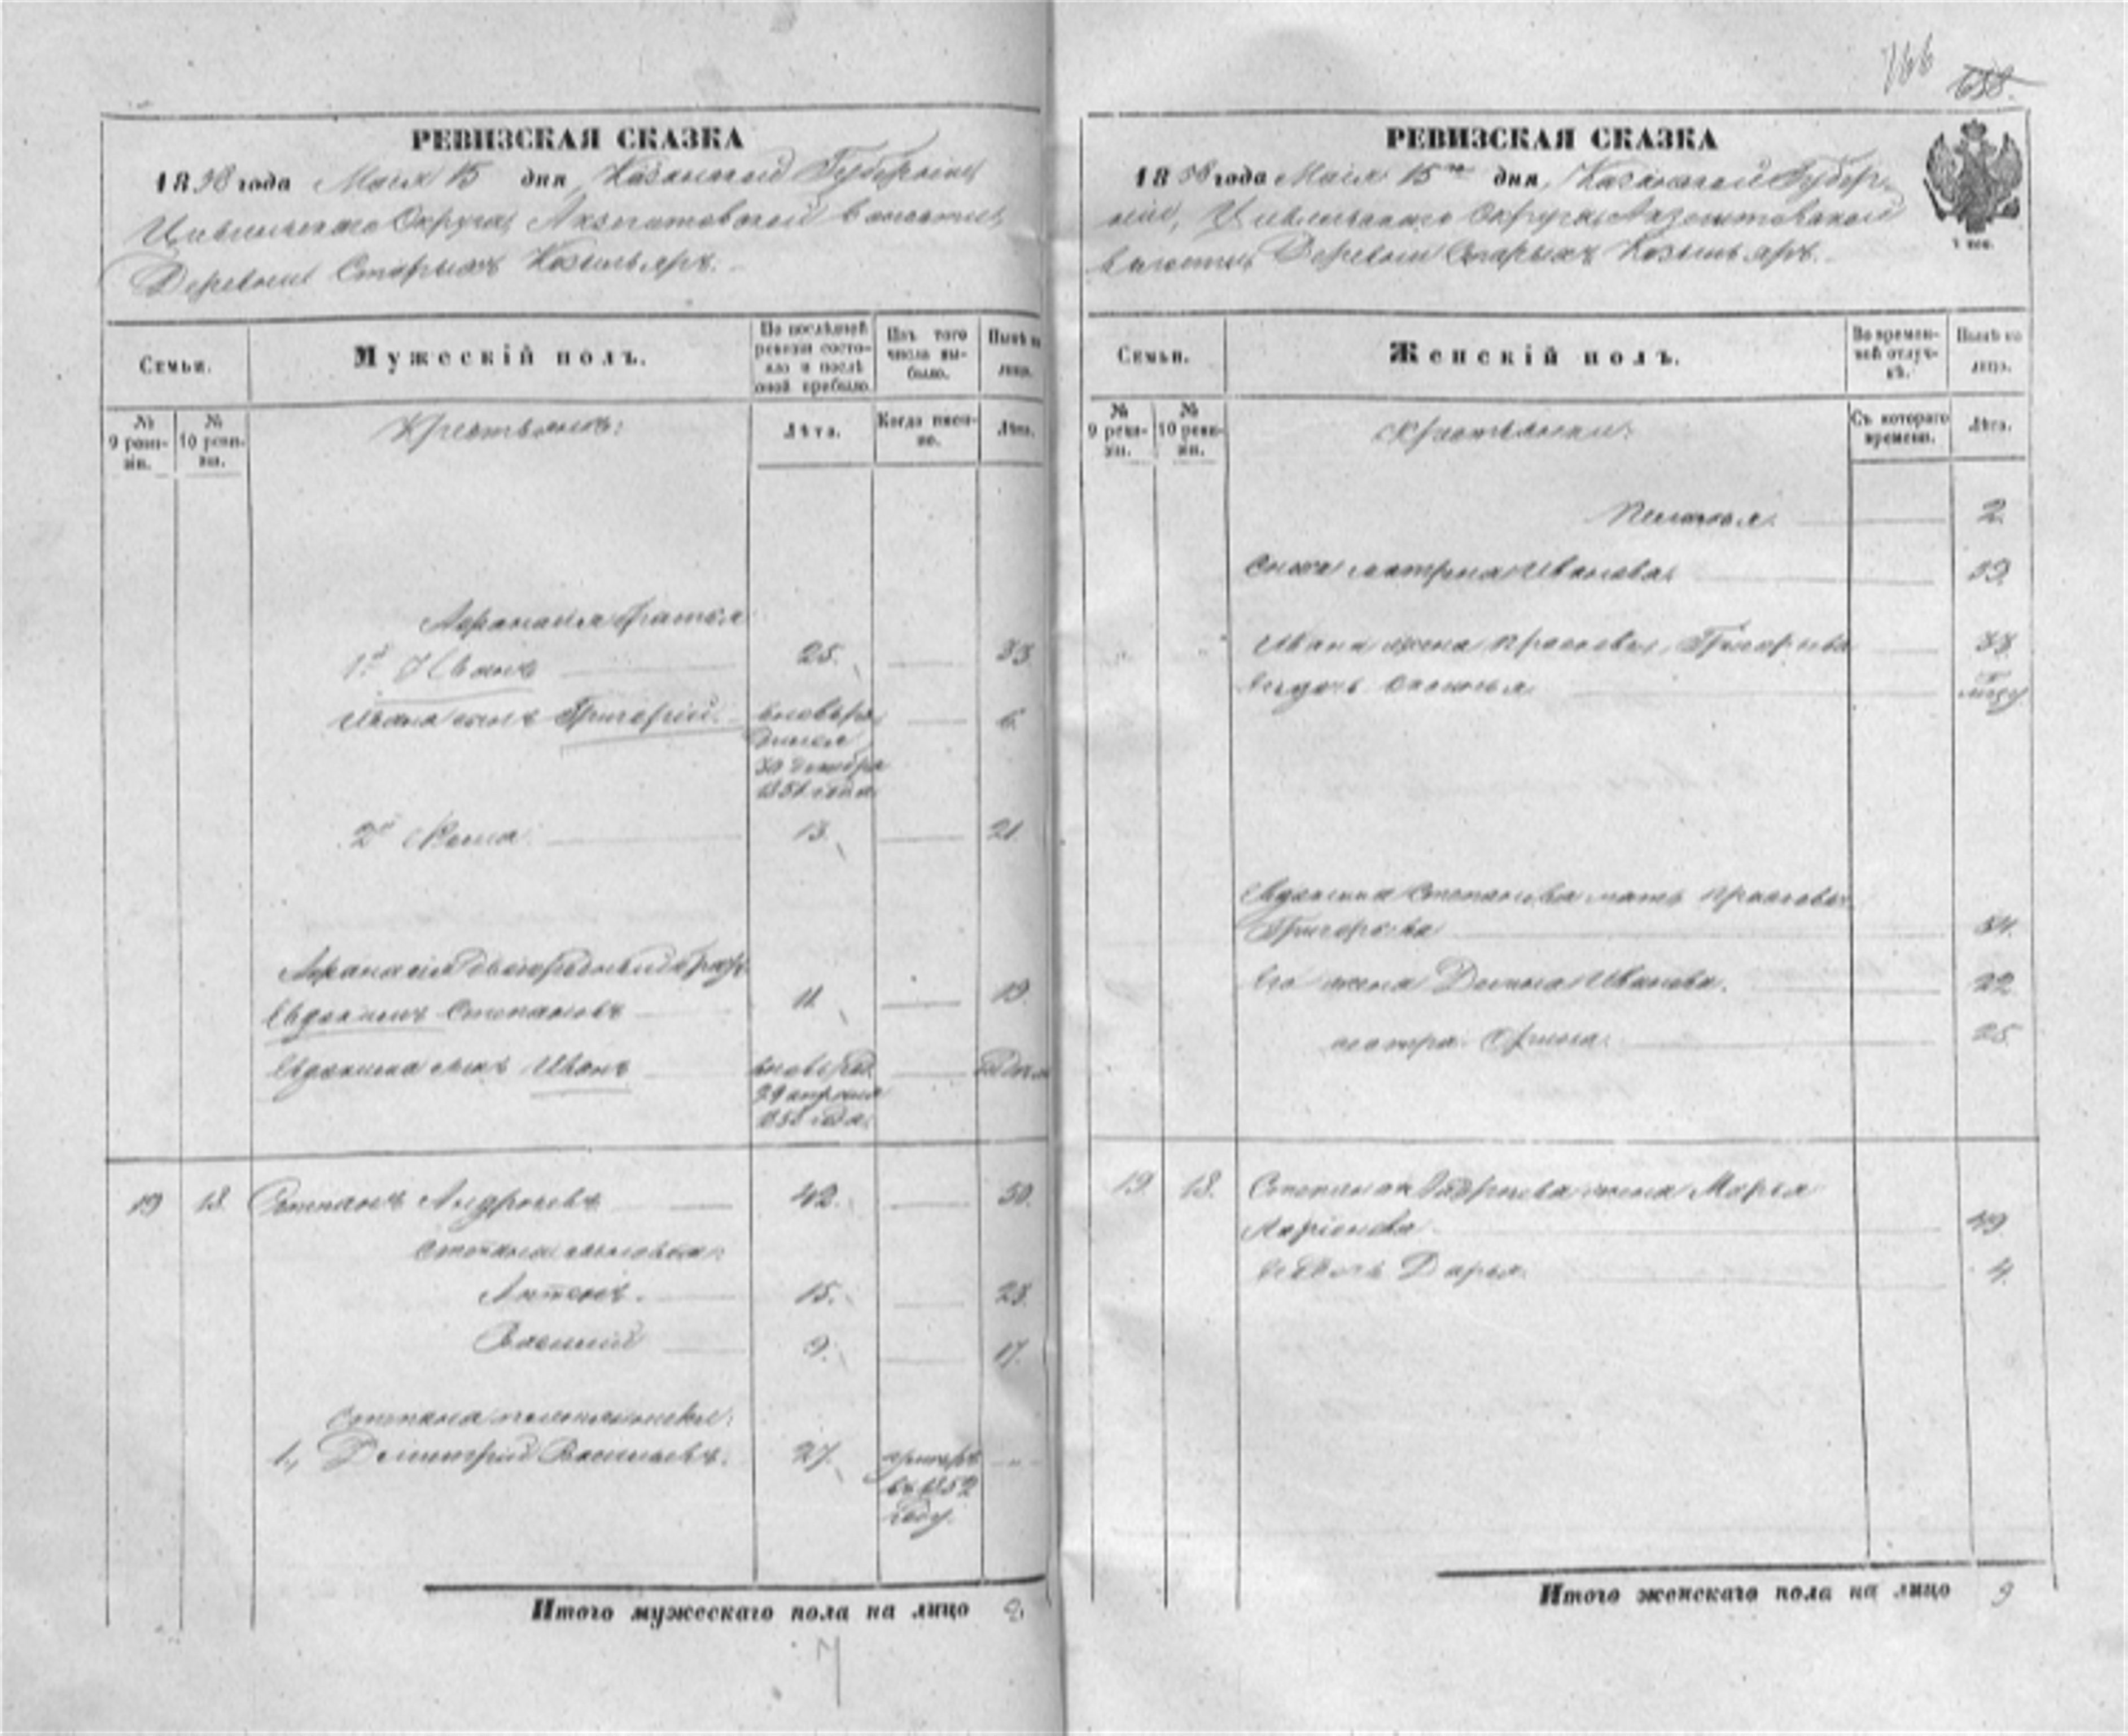 166
638.
РЕВИЗСКАЯ СКАЗКА
1858 года Маия 15 дня, Казанской Губернии,
Цивильскаго Округа, Акзегитовской волости,
Деревни Старыхъ Козыльяръ.
Семьи.
Мужескій полъ.
По послѣдней ревизіи состояло и послѣ оной прибыло.
Изъ того числа выбыло.
Нынѣ на лицо.
№ 9 ревизіи.
№ 10 ревизіи.
Крестьяне:
Лѣта.
Когда именно.
Лѣта.
Афанасія братья
1й Иванъ 25. 33.
Ивана сынъ Григорій. вновь ро 6.
дился
30 декабря
1851 года
2й 13. 21.
Афанасія двоюродный братъ
Евдокимъ Степановъ 11. 19.
Евдокима сынъ Иванъ вновь род.
29 апреля
185 года.
19 18. Степанъ Андреевъ 42. 50.
Степана сыновья:
Антонъ. 15. 23.
Василій 9. 17.
Степана племянники:
1, Дмитрій Васильевъ. 27.
въ 1852
году.
Итого мужескаго пола на лицо 8
7
РЕВИЗСКАЯ СКАЗКА
1858 года Маия 15го дня, Казанской Губер-
ніи, Цивильскаго Округа Акзегитовской
волости, Деревни Старыхъ Козыльяръ.
1 коп.
Семьи.
Женскій полъ.
Во временной отлучкѣ.
Нынѣ на лицо.
№ 9 ревизіи.
№ 10 ревизіи.
Крестьянки:
Съ котораго времени.
Лѣта.
Пелагея. 2.
Матрена Иванова. 39.
Ивана жена Прасковья Григорьева 38.
Его дочь
Евдокима Степанова мать Прасковья
Григорьева 54.
Его жена Иванова. 22
сестра Орина. 25.
19. 18. Степана Андреева жена Марья
Ларіонова 49.
Дарья. 4.
Итого женскаго пола на лицо 9